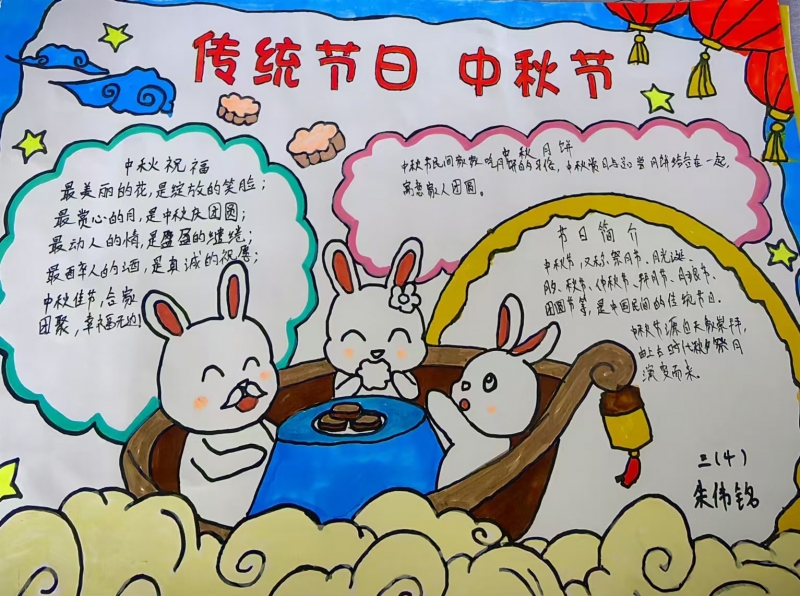 传统节日 中秋节
中秋祝福
最美丽的花,是绽放的笑脸;
最赏心的月,是中秋庆团圆;
最动人的情,是蛋蛋的缱绻;
最酉卒人的酒,是真诚的祝愿;
中秋佳节,合家
团聚,幸福无边!
中秋月饼
中秋节民间家家吃月饼的习俗,中秋赏月与品尝月饼结合在一起,
寓意家人团圆。
节日简介
中秋节,又称祭月节、月光诞、
月夕、秋节、仲秋节、拜月节、月娘节、
团圆节等,是中国民间的传统节日。
中秋节源自天象崇拜,
由上古时代秋夕祭月
演变而来。
三(4)
朱伟铭